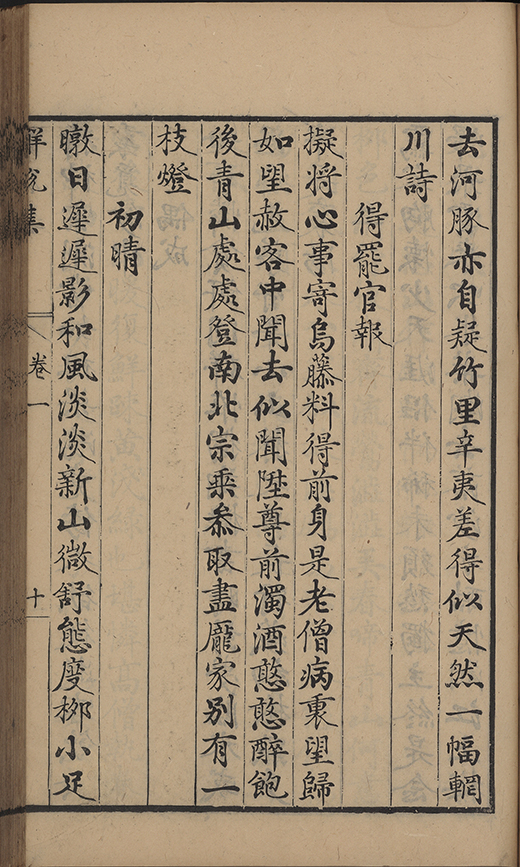 去河豚亦自疑竹里辛夷差得似天然一幅輞
川詩
得罷官報
擬將心事寄烏藤料得前身是老僧病裏望歸
如望赦客中聞去似聞陞尊前濁酒憨憨醉飽
後青山處處登南北宗乘叅取盡龐家別有一
枝燈
初晴
暾日遲遲影和風淡淡新山微舒態度栁小足
解脫集
卷一
十